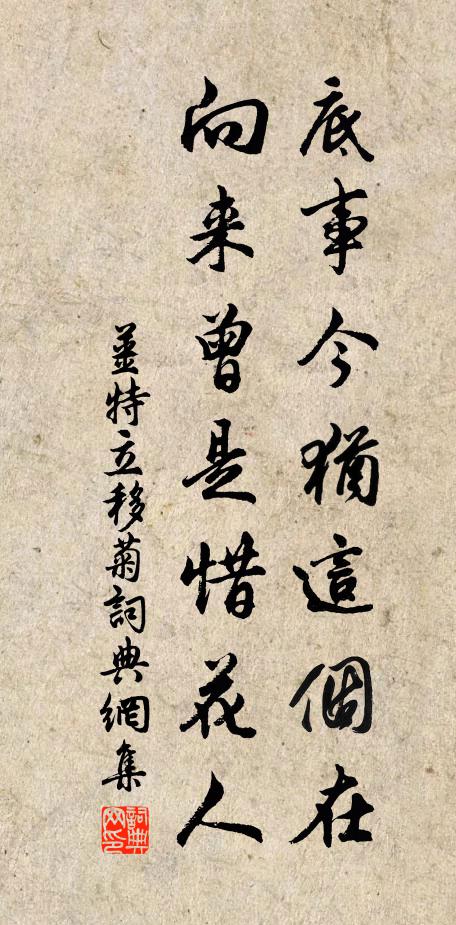 底事今猶這個在
向来曾是惜花人
姜特立移菊詞典網集
詞典網印